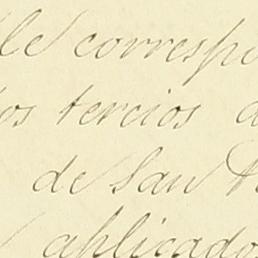 le corresp
os tercios
de San
aplicados